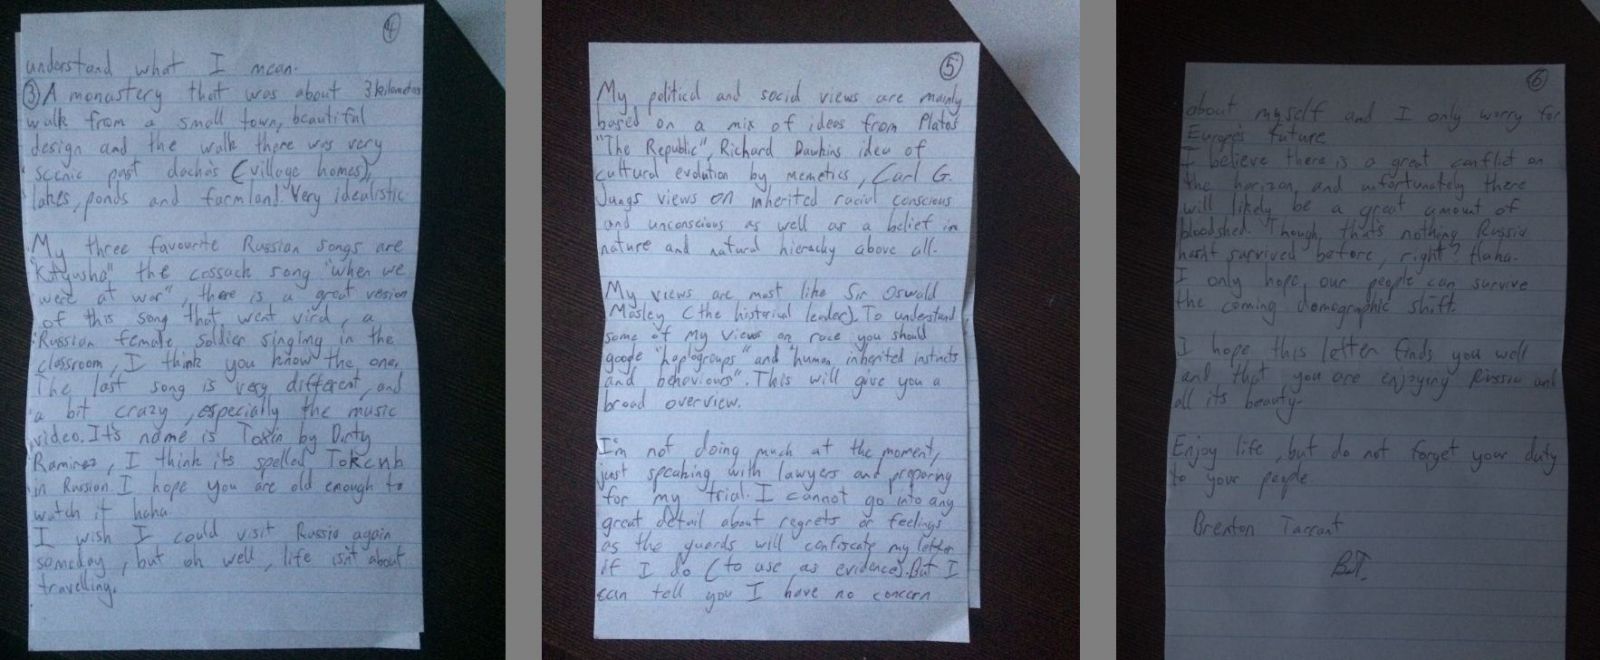 ④
understand what I mean.
③ A monastery that was about 3 kilometres
walk from a small town, beautiful
design and the walk there was very
scenic past dacha's (village homes),
lakes, ponds and farmland. Very idealistic.
My three favourite Russian songs are
"Katyusha" the cossack song "when we
were at war", there is a great version
of this song that went viral, a
Russian female soldier singing in the
classroom, I think you know the one.
The last song is very different, and
a bit crazy, especially the music
video. It's name is Toxin by Dirty
Ramirez, I think its spelled
in Russian. I hope you are old enough to
watch it haha.
I wish I could visit Russia again
someday, but oh well, life isn't about
travelling.
⑤
My political and social views are mainly
based on a mix of ideas from Platos
"The Republic", Richard Dawkins idea of
cultural evolution by memetics, Carl G.
Jungs views on inherited racial conscious
and unconscious as well as a belief in
nature and natural hierachy above all.
My views are most like Sir Oswald
Mosley (the historical leader). To understand
some of my views on race you should
google "haplogroups" and "human inherited instincts
and behaviours". This will give you a
broad overview.
I'm not doing much at the moment,
just speaking with lawyers and preparing
for my trial. I cannot go into any
great detail about regrets or feelings
as the guards will confiscate my letter
if I do (to use as evidence). But I
can tell you I have no concern
⑥
about myself and I only worry for
Europe's future.
I believe there is a great conflict on
the horizon, and unfortunately there
will likely be a great amount of
bloodshed. Though, that's nothing Russia
hasn't survived before, right? Haha.
I only hope our people can survive
the coming demographic shift.
I hope this letter finds you well
and that you are enjoying Russia and
all its beauty.
Enjoy life, but do not forget your duty
to your people
Brenton Tarrant
B.T.